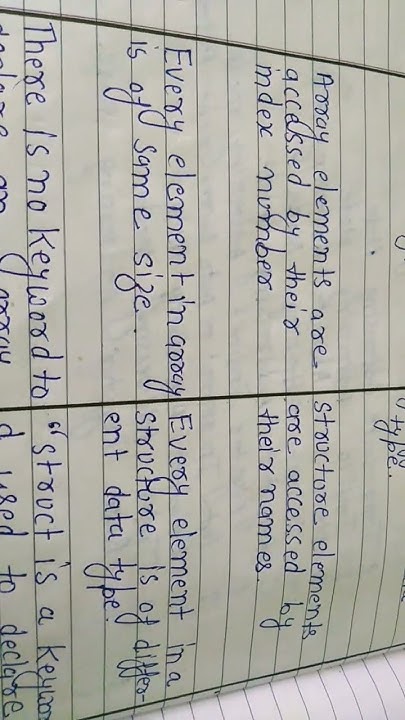 type.
Array elements are
accessed by their
index number.
structure elements
are accessed by
their names.
Every element in array
is of same size.
Every element in a
structure is of differ-
ent data type.
There is no keyword to
declare an array
"struct is a
used to declare